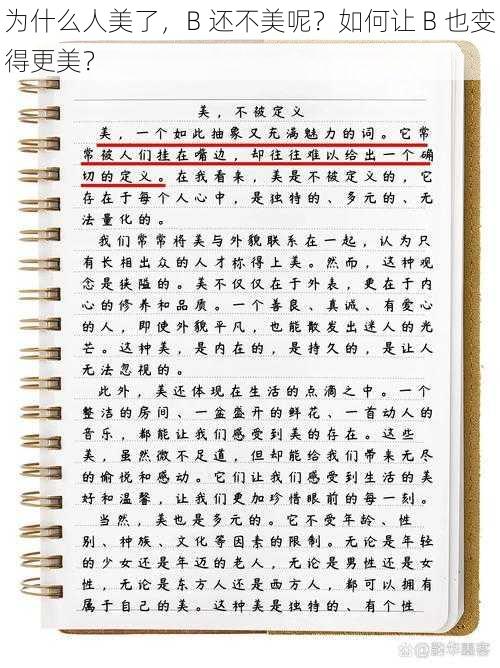 为什么人美了，B 还不美呢？如何让 B 也变
得更美？
美，不被定义
美，一个如此抽象又充满魅力的词。它常
常被人们挂在嘴边，却往往难以给出一个确
切的定义。在我看来，美是不被定义的，它
存在于每个人心中，是独特的、多元的、无
法量化的。
我们常常将美与外貌联系在一起，认为只
有长相出众的人才称得上美。然而，这种观
念是狭隘的。美不仅仅在于外表，更在于内
心的修养和品质。一个善良、真诚、有爱心
的人，即使外貌平凡，也能散发出迷人的光
芒。这种美，是内在的，是持久的，是让人
无法忽视的。
此外，美还体现在生活的点滴之中。一个
整洁的房间、一盆盛开的鲜花、一首动人的
音乐，都能让我们感受到美的存在。这些
美，虽然微不足道，但却能给我们带来无尽
的愉悦和感动。它们让我们感受到生活的美
好和温馨，让我们更加珍惜眼前的每一刻。
当然，美也是多元的。它不受年龄、性
别、种族、文化等因素的限制。无论是年轻
的少女还是年迈的老人，无论是男性还是女
性，无论是东方人还是西方人，都可以拥有
属于自己的美。这种美是独特的、有个性